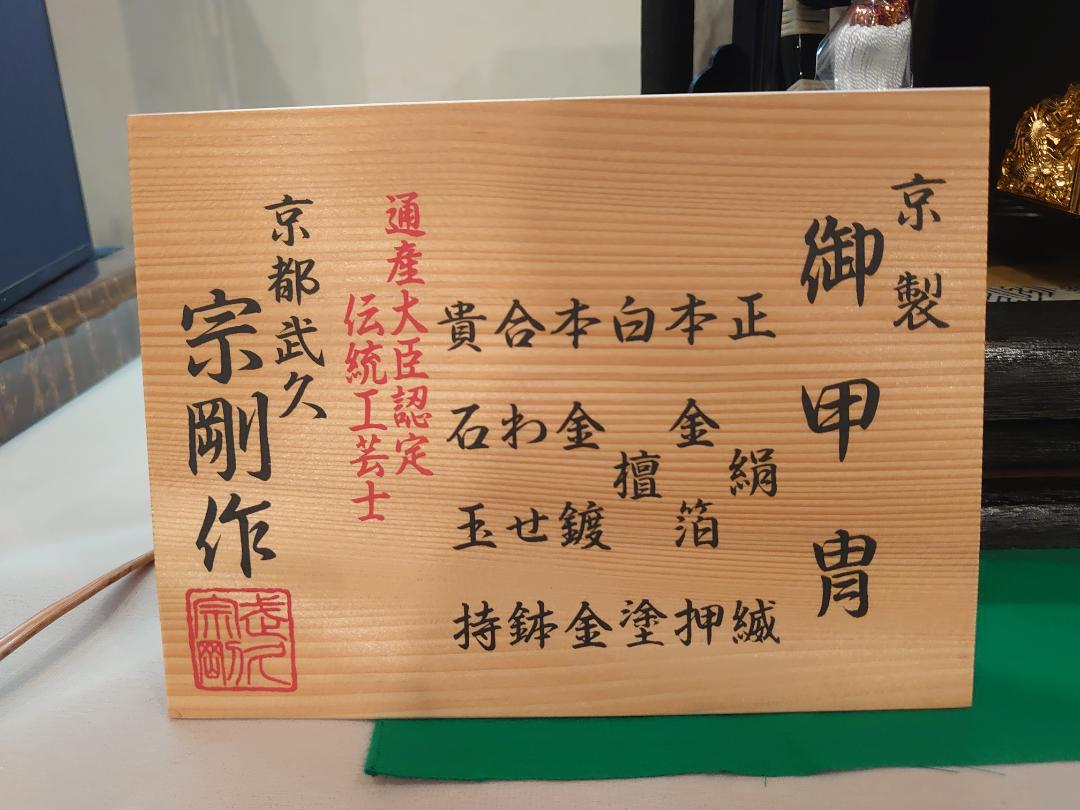 京製
御甲冑
正絹縅
本金箔押
白檀塗
本金鍍金
合わせ鉢
貴石玉持
通産大臣認定
伝統工芸士
京都武久
宗剛作
武久
宗剛